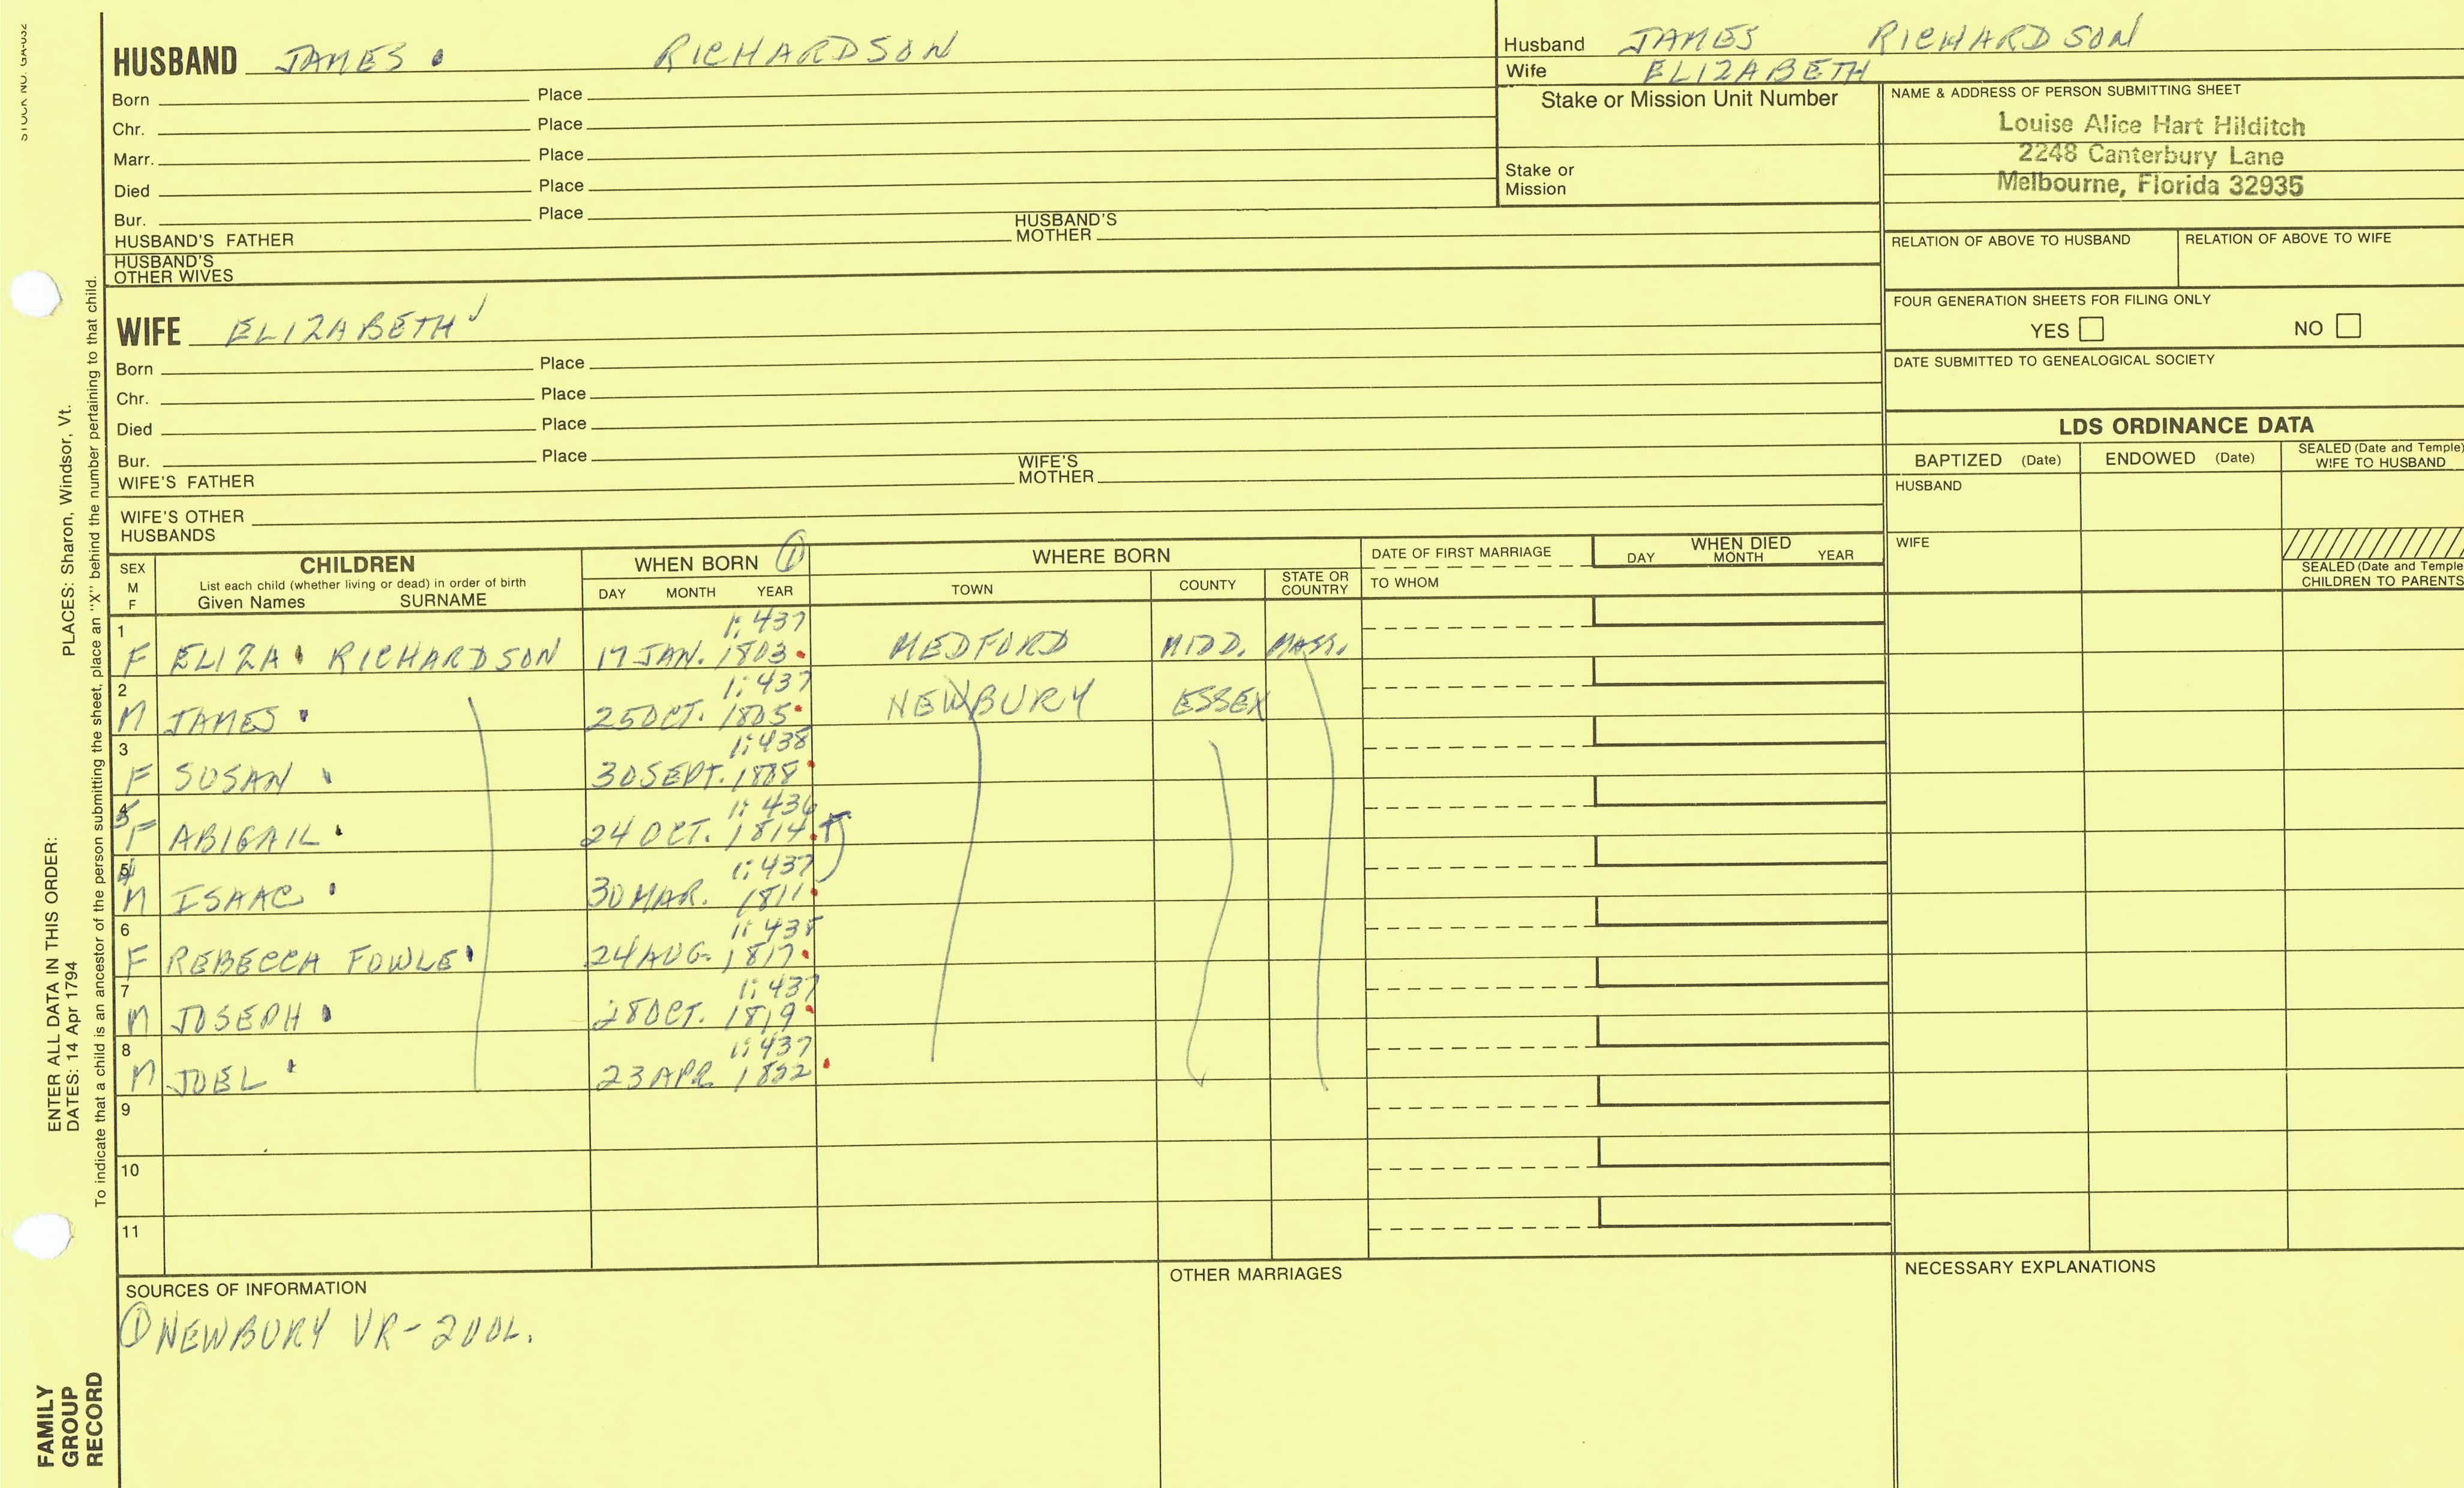 STOCK NO. GA-032
HUSBAND JAMES RICHARDSON
Born Place
Chr. Place
Marr. Place
Died Place
Bur. Place
HUSBAND'S FATHER HUSBAND'S MOTHER
HUSBAND'S OTHER WIVES
WIFE ELIZABETH
Born Place
Chr. Place
Died Place
Bur. Place
WIFE'S FATHER WIFE'S MOTHER
WIFE'S OTHER HUSBANDS
Husband JAMES RICHARDSON
Wife ELIZABETH
Stake or Mission Unit Number
Stake or Mission
NAME & ADDRESS OF PERSON SUBMITTING SHEET
Louise Alice Hart Hilditch
2248 Canterbury Lane
Melbourne, Florida 32935
RELATION OF ABOVE TO HUSBAND RELATION OF ABOVE TO WIFE
FOUR GENERATION SHEETS FOR FILING ONLY
YES NO
DATE SUBMITTED TO GENEALOGICAL SOCIETY
LDS ORDINANCE DATA
BAPTIZED (Date) ENDOWED (Date) SEALED (Date and Temple) WIFE TO HUSBAND
HUSBAND
WIFE
SEALED (Date and Temple CHILDREN TO PARENTS
SEX M F
CHILDREN
List each child (whether living or dead) in order of birth
Given Names SURNAME
WHEN BORN ①
DAY MONTH YEAR
WHERE BORN
TOWN COUNTY STATE OR COUNTRY
DATE OF FIRST MARRIAGE
TO WHOM
WHEN DIED
DAY MONTH YEAR
1 1:437
F ELIZA RICHARDSON 17 JAN. 1803 MEDFORD MIDD. MASS.
2 1:437
M JAMES 25 OCT. 1805 NEWBURY ESSEX
3 1:438
F SUSAN 30 SEPT. 1808
5 1:436
F ABIGAIL 24 OCT. 1814
4 1:437
M ISAAC 30 MAR. 1811
6 1:438
F REBECCA FOWLE 24 AUG. 1817
7 1:437
M JOSEPH 28 OCT. 1819
8 1:437
M JOEL 23 APR 1822
9
10
11
SOURCES OF INFORMATION
① NEWBURY VR-2VOL.
OTHER MARRIAGES
NECESSARY EXPLANATIONS
PLACES: Sharon, Windsor, Vt.
ENTER ALL DATA IN THIS ORDER:
DATES: 14 Apr 1794
To indicate that a child is an ancestor of the person submitting the sheet, place an "X" behind the number pertaining to that child.
FAMILY
GROUP
RECORD